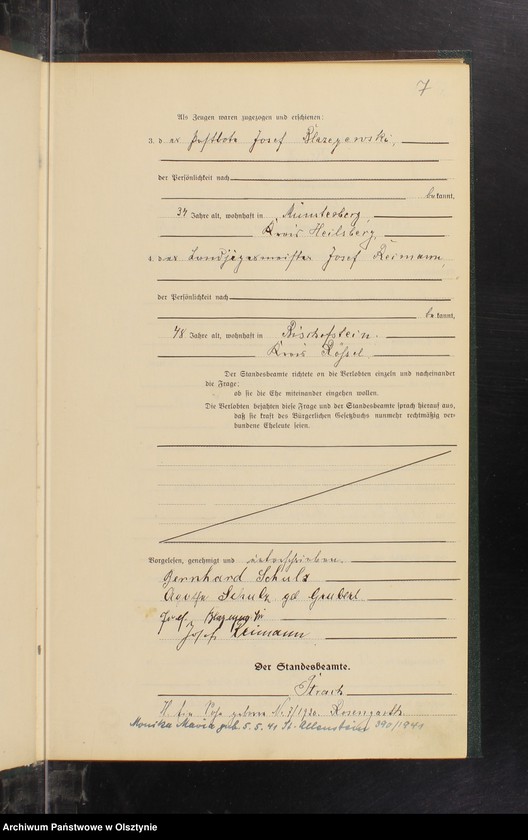 7
Als Zeugen waren zugezogen und erschienen:
3. der Postbote Josef Blaszejewski,
der Persönlichkeit nach
bekannt,
34 Jahre alt, wohnhaft in Münsterberg,
Kreis Heilsberg,
4. der Landjägermeister Josef Reimann,
der Persönlichkeit nach
bekannt,
48 Jahre alt, wohnhaft in Bischofstein.
Kreis Rößel
Der Standesbeamte richtete an die Verlobten einzeln und nacheinander
die Frage:
ob sie die Ehe miteinander eingehen wollen.
Die Verlobten bejahten diese Frage und der Standesbeamte sprach hierauf aus,
daß sie kraft des Bürgerlichen Gesetzbuchs nunmehr rechtmäßig ver-
bundene Eheleute seien.
Vorgelesen, genehmigt und unterschrieben.
Bernhard Schulz
Schulz geb
Josef
Josef Reimann
Der Standesbeamte.
geboren Nr. 7/1930. Rosengarth.
Monika Maria geb. 5.5.41 St. Allenstein 390/1941
Archiwum Państwowe w Olsztynie